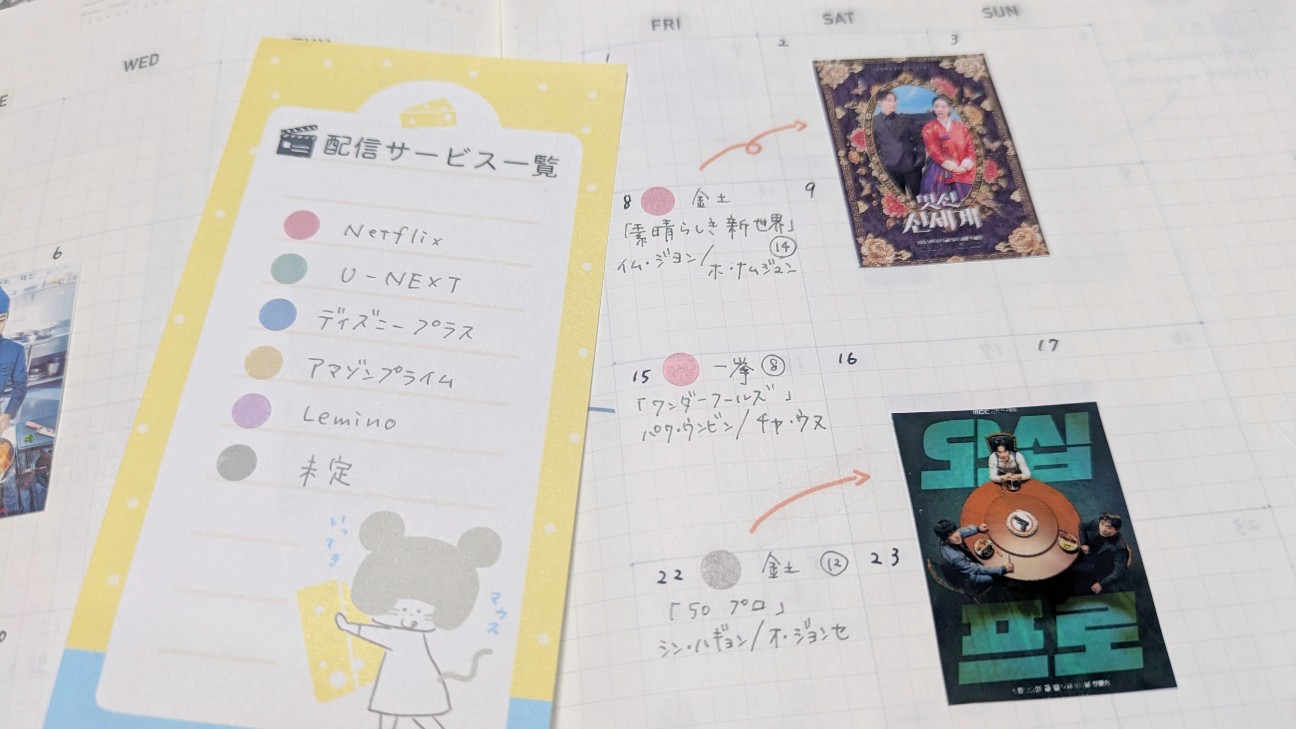 WED
FRI
SAT
SUN
配信サービス一覧
Netflix
U-NEXT
ディズニープラス
アマゾンプライム
Lemino
未定
いってき
マウス
6
1
2
3
8 金土
「素晴らしき新世界」
⑭
イム・ジヨン/ホ・ナムジュン
9
멋진
신세계
15 一挙⑧
「ワンダーフールズ」
パク・ウンビン/チャ・ウヌ
16
17
22 金土 ⑫
「50 プロ」
シン・ハギュン/オ・ジョンセ
23
MBC
오십
프로